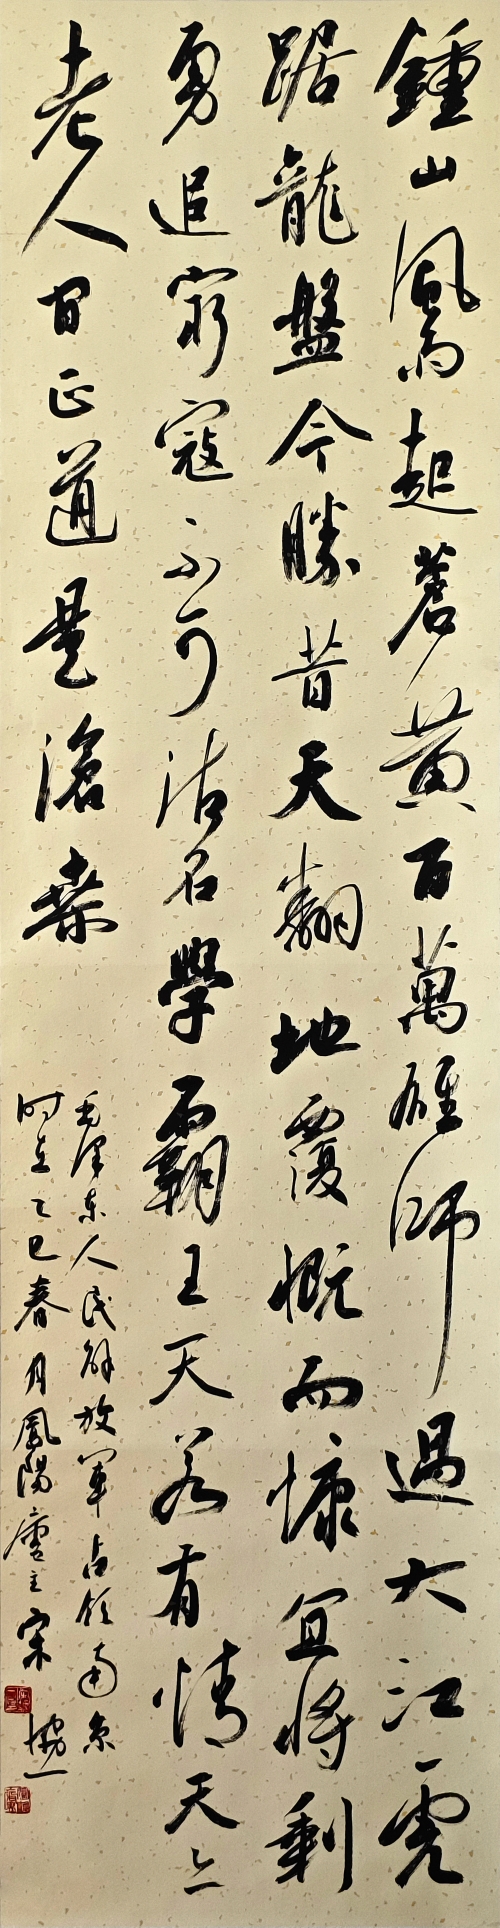 鍾山風雨起蒼黃百萬雄師過大江虎
踞龍盤今勝昔天翻地覆慨而慷宜將剩
勇追窮寇不可沽名學霸王天若有情天亦
老人间正道是滄桑
毛澤东人民解放軍占領南京
时在乙巳春月鳳陽廬主宋